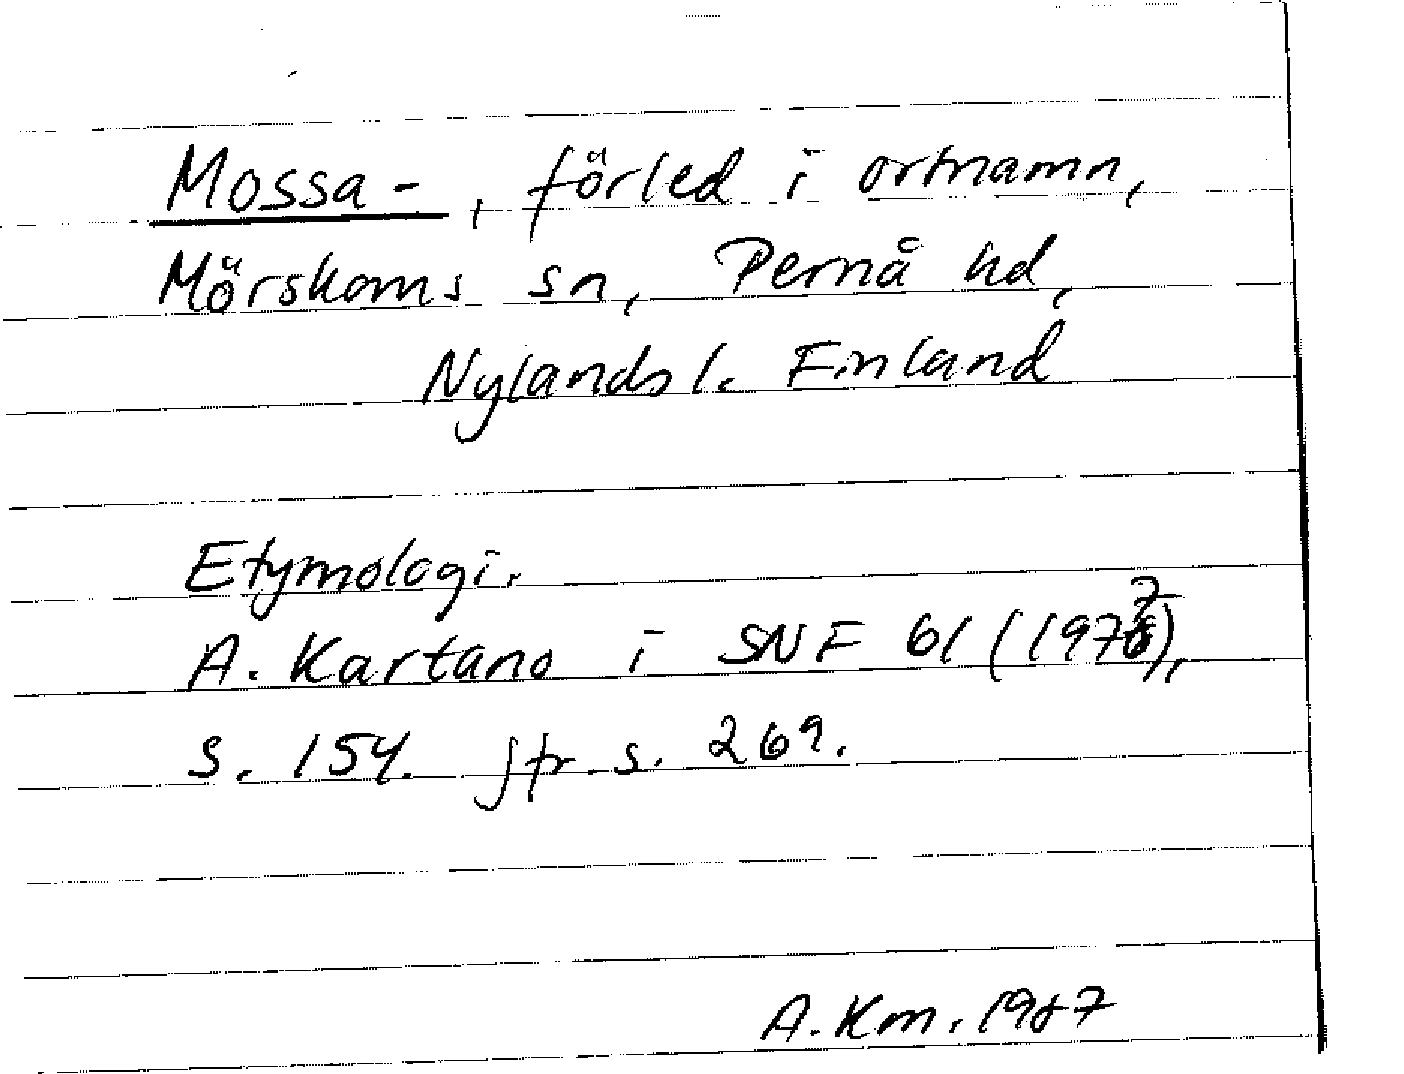 Mossa-, förled i ortnamn,
Mörskoms sn, Pernå hd,
Nylands l. Finland
Etymologi.
A. Kartano i SNF 61 (1977),
s. 154. jfr s. 269.
A.Km. 1987